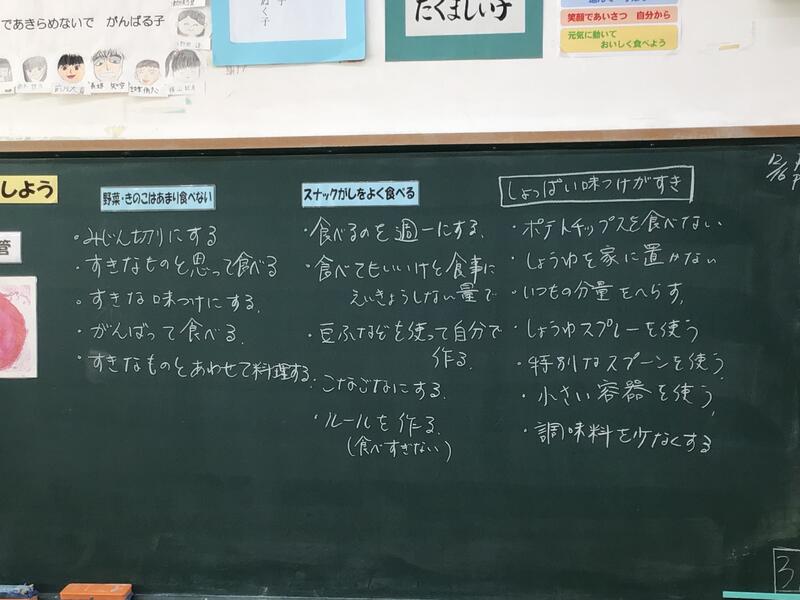 であきらめないで がんばる子
たくましい子
笑顔であいさつ 自分から
元気に動いて
おいしく食べよう
しよう
管
野菜・きのこはあまり食べない
・みじん切りにする
・すきなものと思って食べる
・すきな味つけにする。
・がんばって食べる.
・すきなものとあわせて料理する.
スナックがしをよく食べる
・食べるのを週一にする.
・食べてもいいけど食事に
えいきょうしない量で
・豆ふなどを使って自分で
作る.
・こなごなにする.
・ルールを作る.
(食べすぎない)
しょっぱい味つけがすき
・ポテトチップスを食べない
・しょうゆを家に置かない
・いつもの分量をへらす,
・しょうゆスプレーを使う
・特別なスプーンを使う.
・小さい容器を使う,
・調味料を少なくする
12/16
3